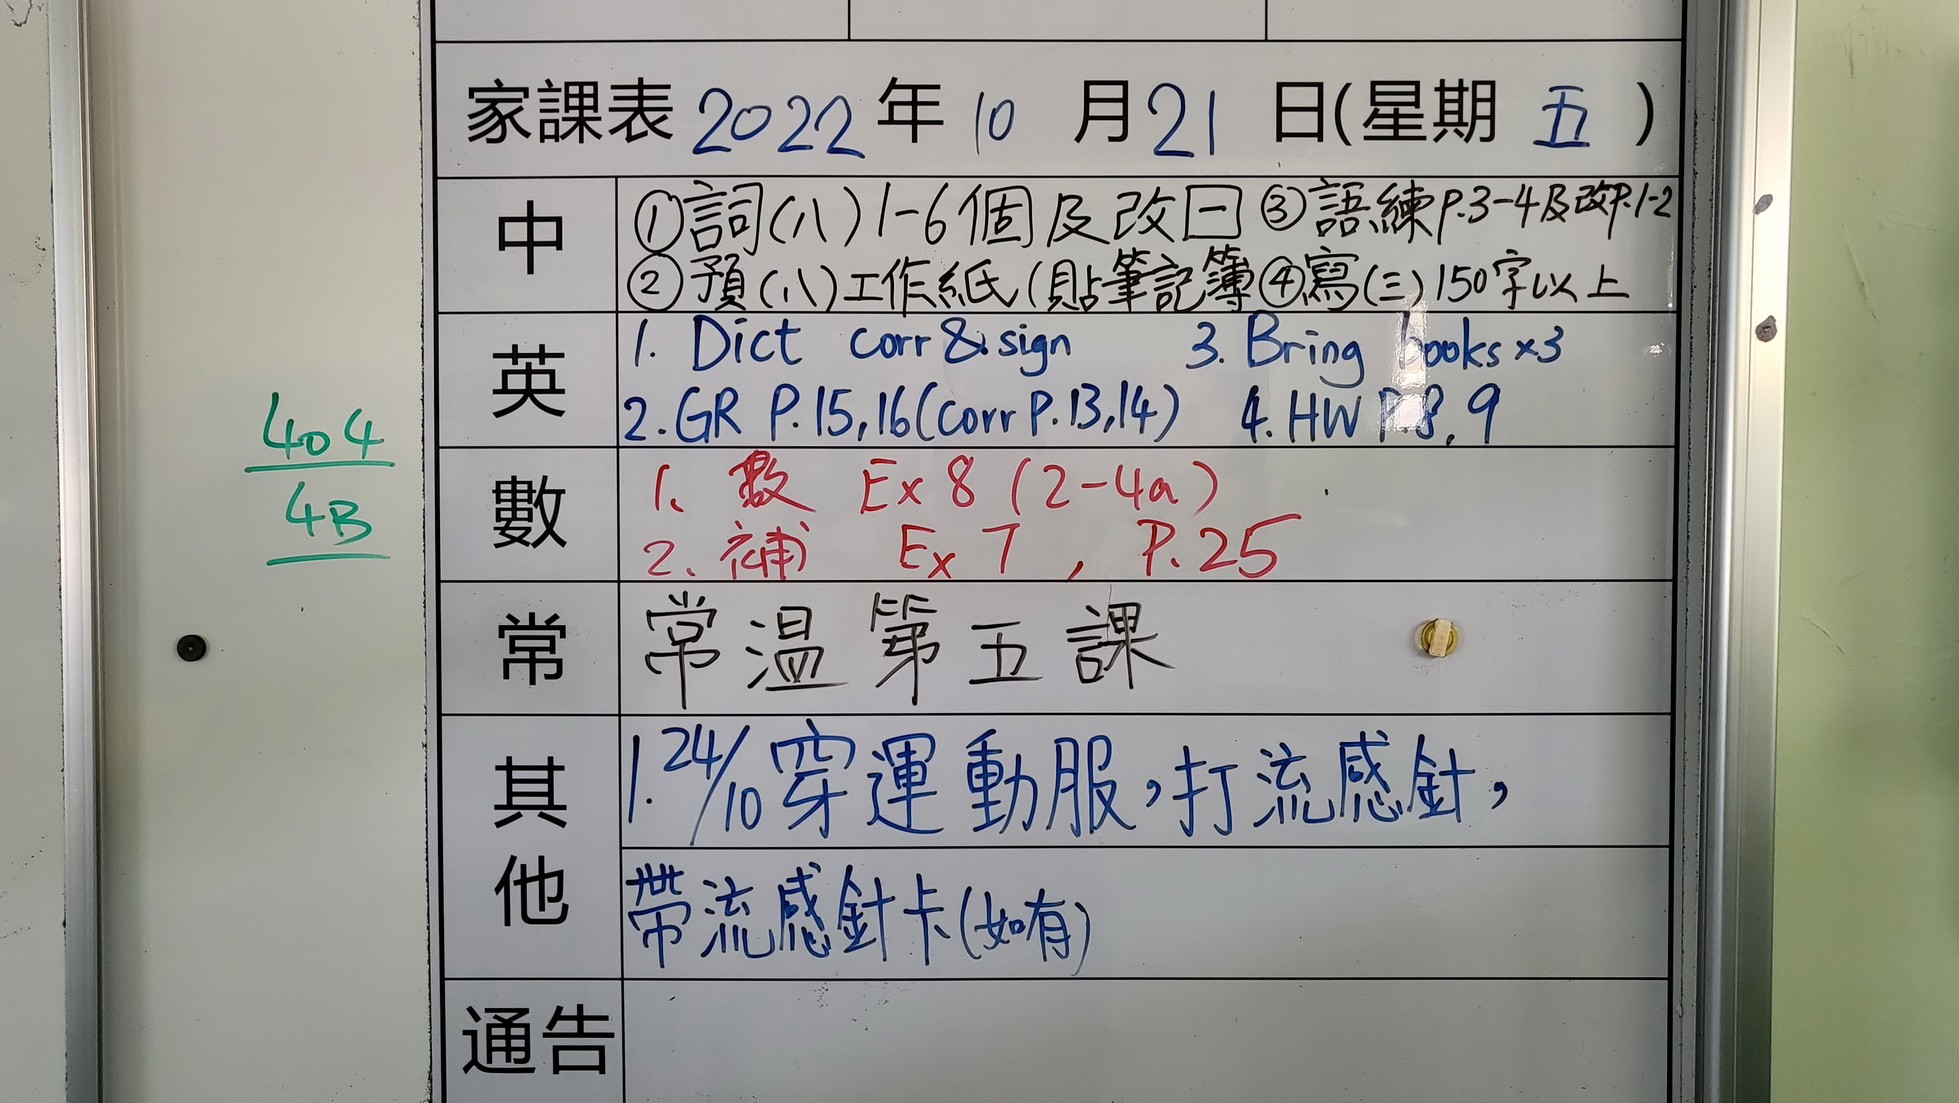 家課表 2022 年 10 月 21 日(星期 五 )
中
①詞(八)1-6個及改曰 ③語練P.3-4及改P.1-2
②預(八)工作紙(貼筆記簿 ④寫(三)150字以上
英
1. Dict corr & sign 3. Bring books x3
2. GR P.15,16 (corr P.13,14) 4. HW P.8, 9
404
4B
數
1. 數 Ex 8 (2-4a)
2. 補 Ex 7, P.25
常
常溫第五課
其他
1. 24/10 穿運動服,打流感針,
帶流感針卡(如有)
通告